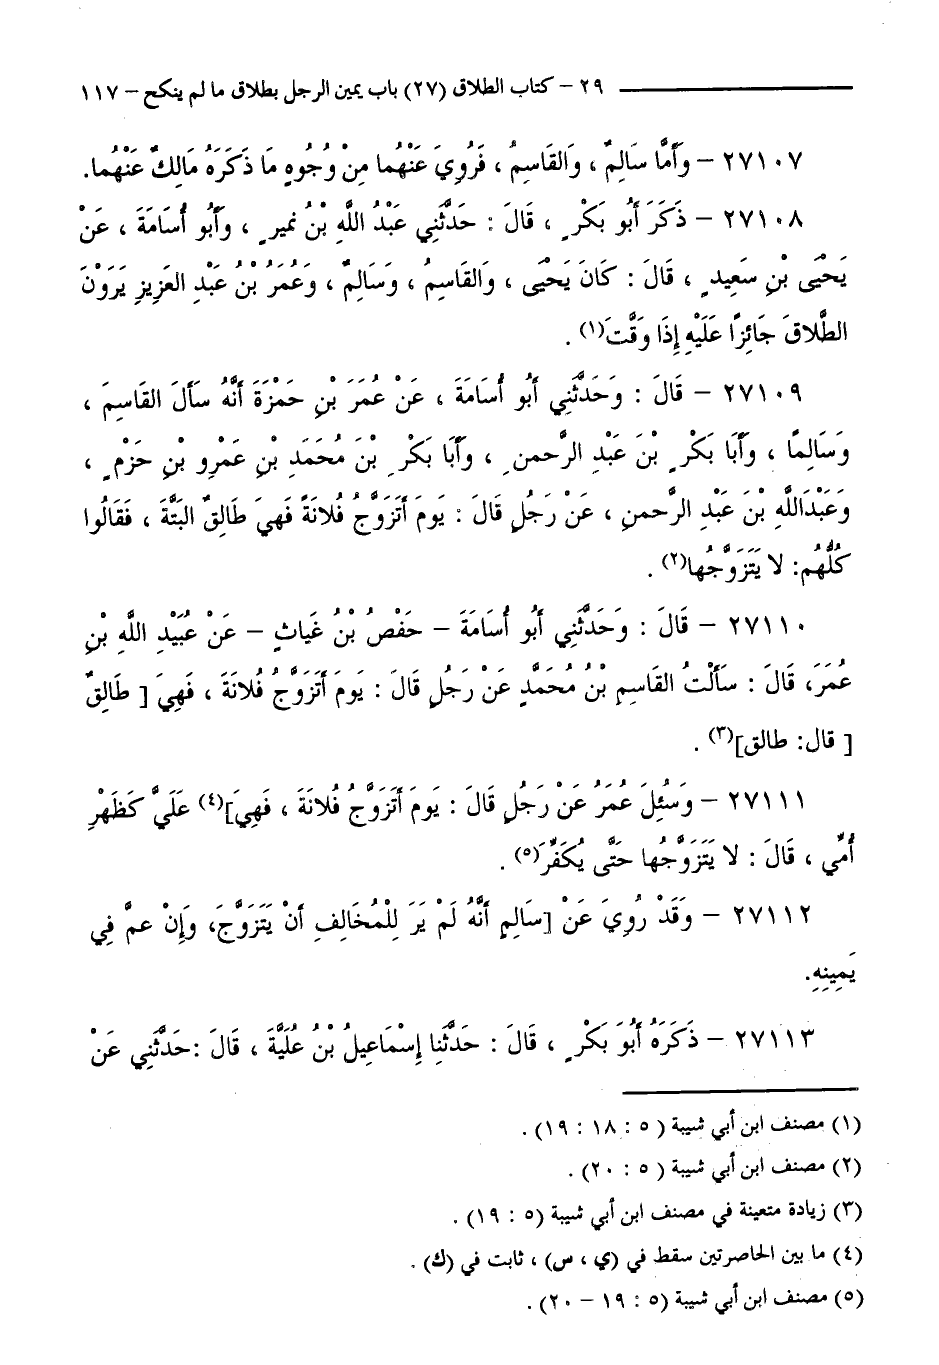 ٢٩ – كتاب الطلاق (٢٧) باب يمين الرجل بطلاق ما لم ينكح – ١١٧
٢٧١٠٧ – وَأَمَّا سَالِمٌ ، وَالقَاسِمُ ، فَرُوِيَ عَنْهُما مِنْ وُجُوهٍ مَا ذَكَرَهُ مَالِكٌ عَنْهُما.
٢٧١٠٨ – ذَكَرَ أَبُو بَكْرٍ ، قَالَ : حَدَّثَنِي عَبْدُ اللَّهِ بْنُ نميرٍ ، وَأَبُو أُسَامَةَ ، عَنْ
يَحْيَى بْنِ سَعِيدٍ ، قَالَ : كَانَ يَحْيَى ، وَالقَاسِمُ ، وَسَالِمٌ ، وَعُمَرُ بْنُ عَبْدِ العَزِيزِ يَرَوْنَ
الطَّلاقَ جَائِزًا عَلَيْهِ إِذَا وَقَّتَ(١) .
٢٧١٠٩ – قَالَ : وَحَدَّثَنِي أَبُو أُسَامَةَ ، عَنْ عُمَرَ بْنِ حَمْزَةَ أَنَّهُ سَأَلَ القَاسِمَ ،
وَسَالِمًا ، وَأَبَا بَكْرٍ بْنَ عَبْدِ الرَّحمنِ ، وَأَبَا بَكْرِ بْنَ مُحَمَدِ بْنِ عَمْرِو بْنِ حَزْمٍ ،
وَعَبْدَاللَّهِ بْنَ عَبْدِ الرَّحمنِ ، عَنْ رَجُلٍ قَالَ : يَومَ أَتَزَوَّجُ فُلانَةً فَهِيَ طَالِقٌ البَتَّةَ ، فَقَالُوا
كُلُّهُم: لا يَتَزَوَّجُها(٢) .
٢٧١١٠ – قَالَ : وَحَدَّثَنِي أَبُو أُسَامَةَ – حَفْصُ بْنُ غَياثٍ – عَنْ عُبَيْدِ اللَّهِ بْنِ
عُمَرَ، قَالَ : سَأَلْتُ القَاسِمِ بْنُ مُحَمَّدٍ عَنْ رَجُلٍ قَالَ : يَومَ أَتَزَوَّجُ فُلانَةَ ، فَهِيَ [ طَالِقٌ
[ قال: طالق](٣) .
٢٧١١١ – وَسُئِلَ عُمَرُ عَنْ رَجُلٍ قَالَ : يَومَ أَتَزَوَّجُ فُلانَةَ ، فَهِيَ](٤) عَلَيَّ كَظَهْرِ
أُمِّي ، قَالَ : لا يَتَزَوَّجُها حَتَّى يُكَفِّرَ(٥) .
٢٧١١٢ – وَقَدْ رُوِيَ عَنْ [سَالِمٍ أَنَّهُ لَمْ يَرَ لِلْمُخَالِفِ أَنْ يَتَزَوَّجَ، وَإِنْ عمَّ فِي
يَمِينِهِ.
٢٧١١٣ – ذَكَرَهُ أَبُوَ بَكْرٍ ، قَالَ : حَدَّثَنِا إِسْمَاعِيلُ بْنُ عُلَيَّةَ ، قَالَ :حَدَّثَنِي عَنْ
(١) مصنف ابن أبي شيبة ( ٥ : ١٨ : ١٩) .
(٢) مصنف ابن أبي شيبة ( ٥ : ٢٠) .
(٣) زيادة متعينة في مصنف ابن أبي شيبة (٥ : ١٩) .
(٤) ما بين الحاصرتين سقط في (ي ، س) ، ثابت في (ك) .
(٥) مصنف ابن أبي شيبة (٥ : ١٩ – ٢٠) .